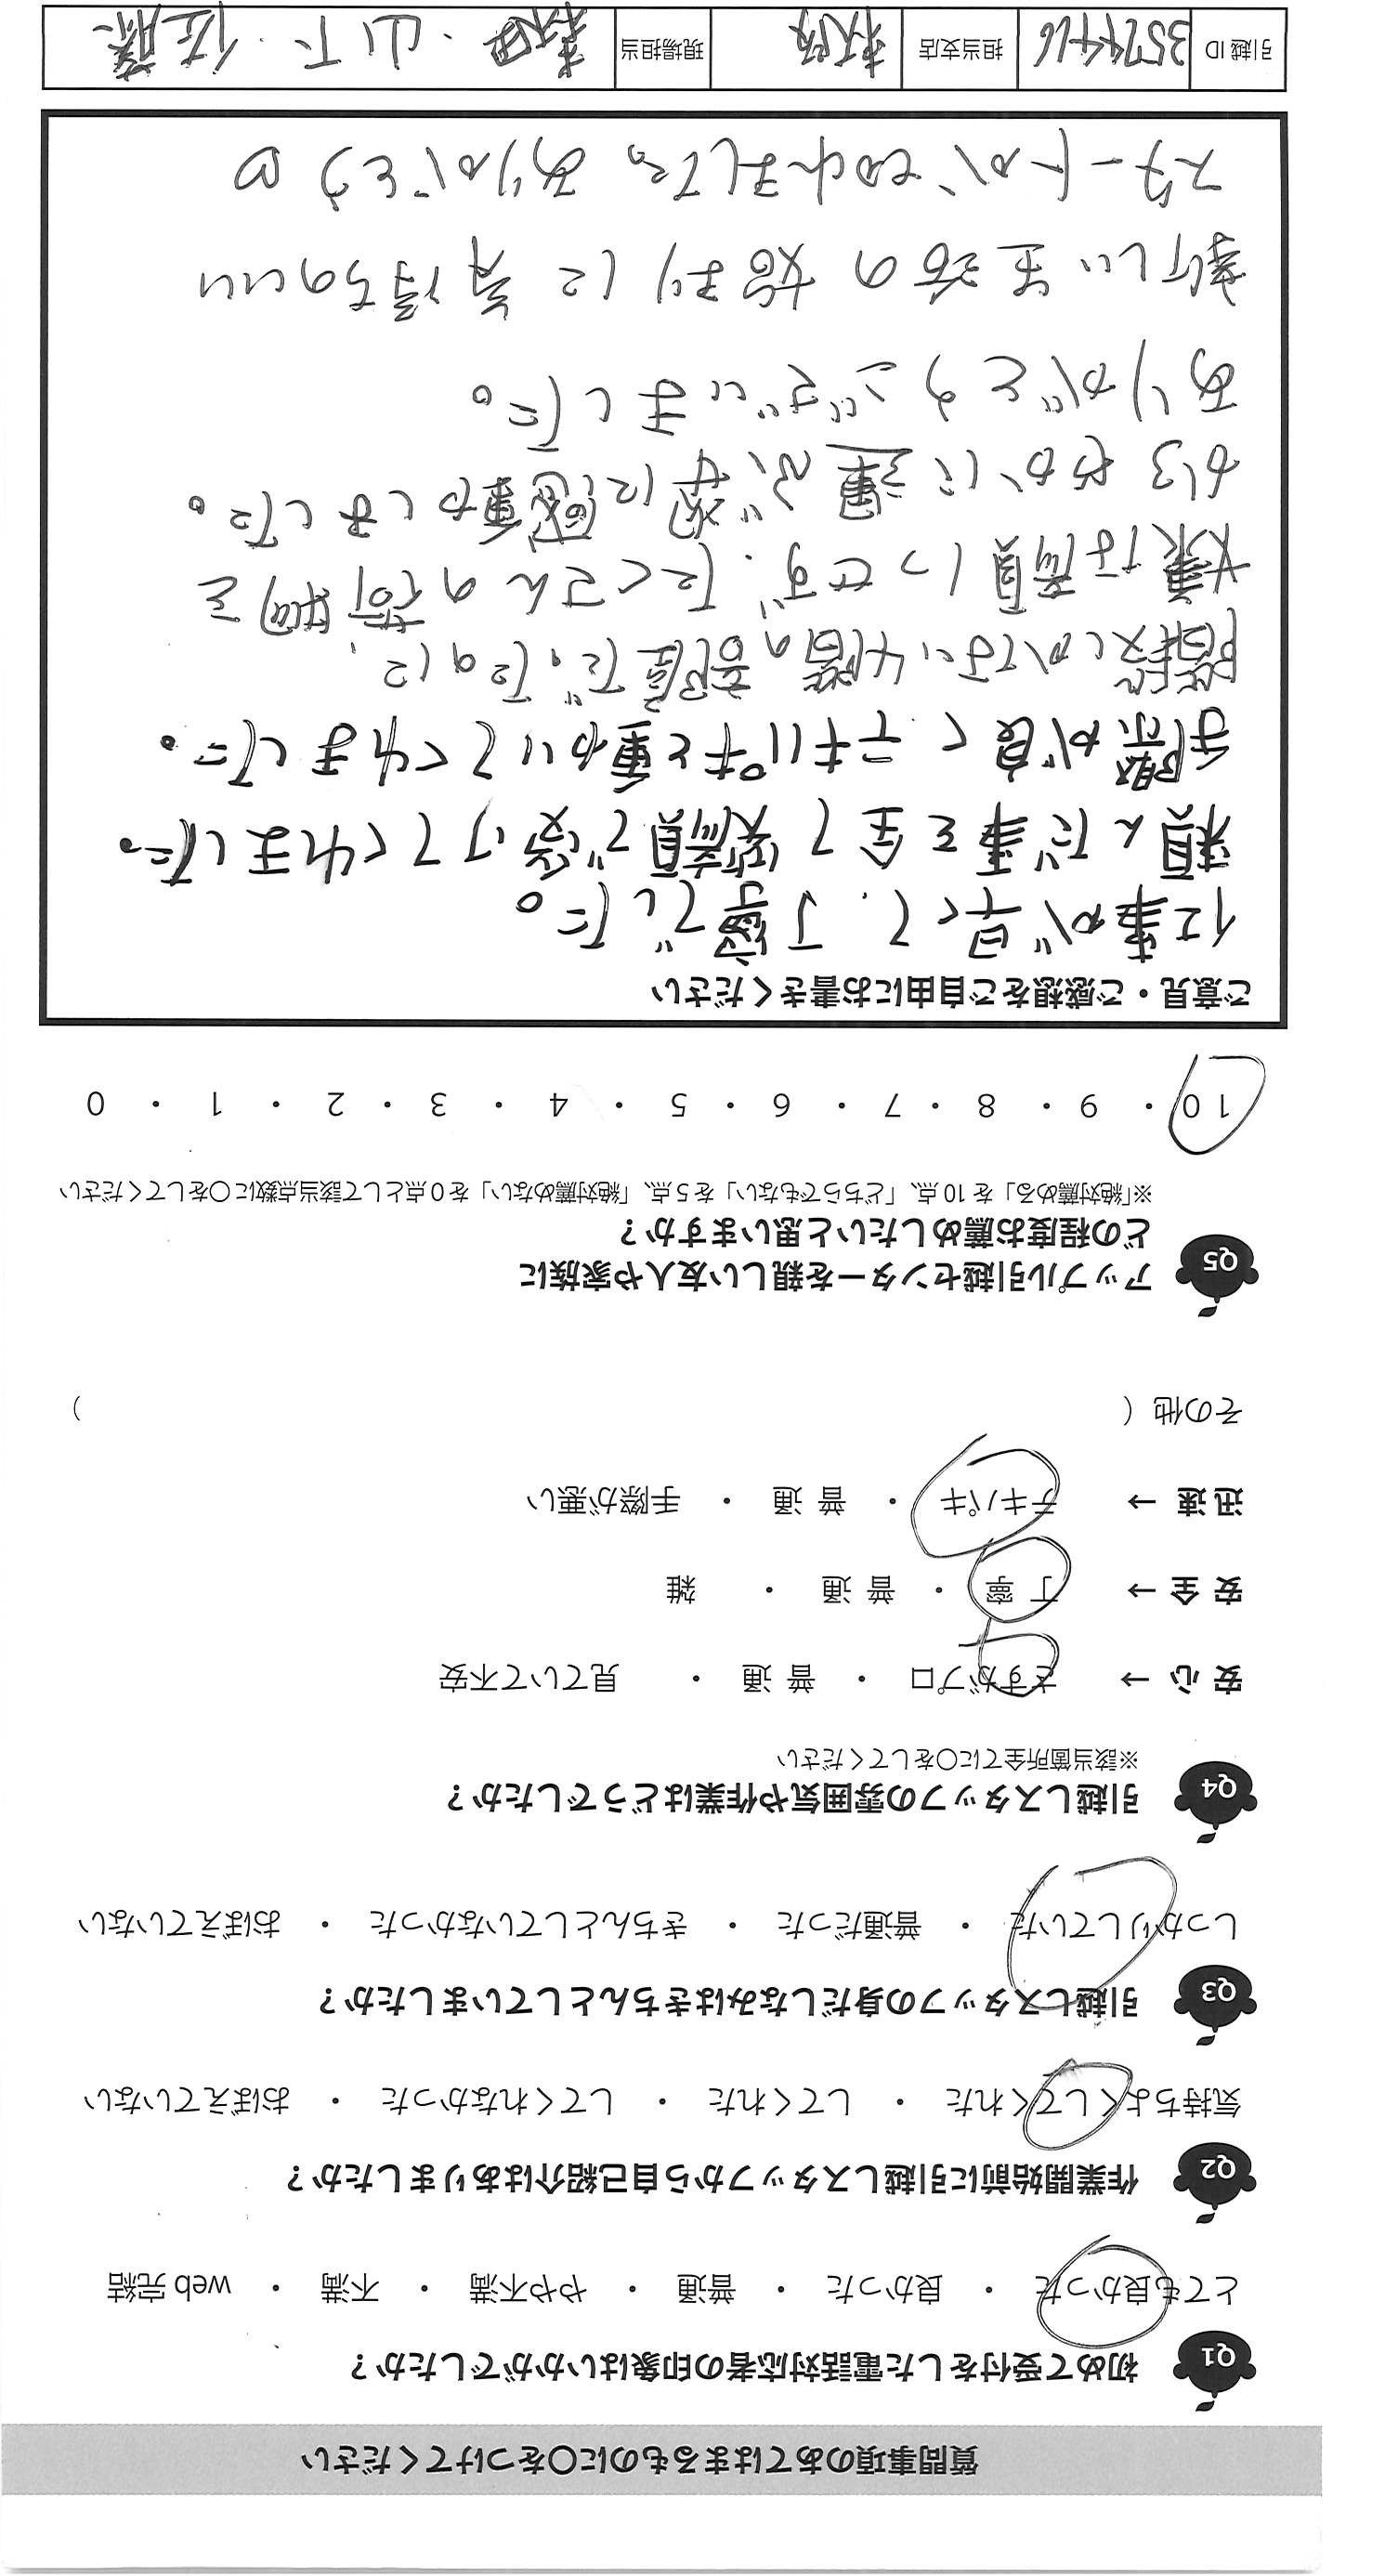 質問事項のあてはまるものに〇をつけてください
Q1 初めて受付をした電話対応者の印象はいかがでしたか？
とても良かった ・ 良かった ・ 普通 ・ やや不満 ・ 不満 ・ web 完結
Q2 作業開始前に引越しスタッフから自己紹介はありましたか？
気持ちよくしてくれた ・ してくれた ・ してくれなかった ・ おぼえていない
Q3 引越しスタッフの身だしなみはきちんとしていましたか？
しっかりしていた ・ 普通だった ・ きちんとしていなかった ・ おぼえていない
Q4 引越しスタッフの雰囲気や作業はどうでしたか？
※該当箇所全てに〇をしてください
安 心 → さすがプロ ・ 普 通 ・ 見ていて不安
安 全 → 丁 寧 ・ 普 通 ・ 雑
迅 速 → テキパキ ・ 普 通 ・ 手際が悪い
その他 （ ）
Q5 アップル引越センターを親しい友人や家族に
どの程度お薦めしたいと思いますか？
※「絶対薦める」を 10 点、「どちらでもない」を 5 点、「絶対薦めない」を 0 点として該当点数に〇をしてください
10 ・ 9 ・ 8 ・ 7 ・ 6 ・ 5 ・ 4 ・ 3 ・ 2 ・ 1 ・ 0
ご意見・ご感想をご自由にお書きください
仕事が早くて、丁寧でした。
頼んだ事を全て笑顔で受けてくれました。
手際が良く、テキパキと動いてくれました。
階段しかない4階の部屋だったのに、
嫌な顔1つせず、たくさんの荷物を
かろやかに運ぶ姿に感動しました。
ありがとうございました。
新しい生活の始まりに気持ちのいい
スタートがきれました。ありがとう
引越 ID 3574416 担当支店 現場担当 森田・山下・佐藤